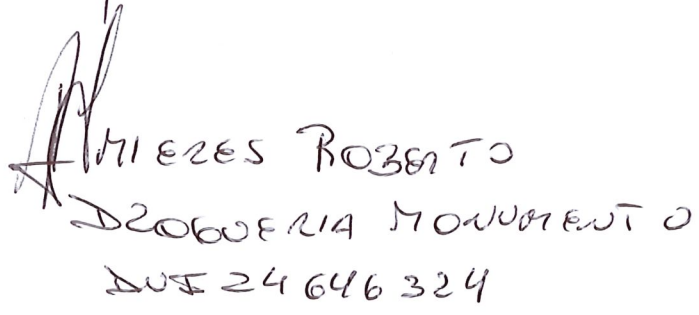 MIERES ROBERTO
DROGUERIA MONUMENTO
DNI 24646324